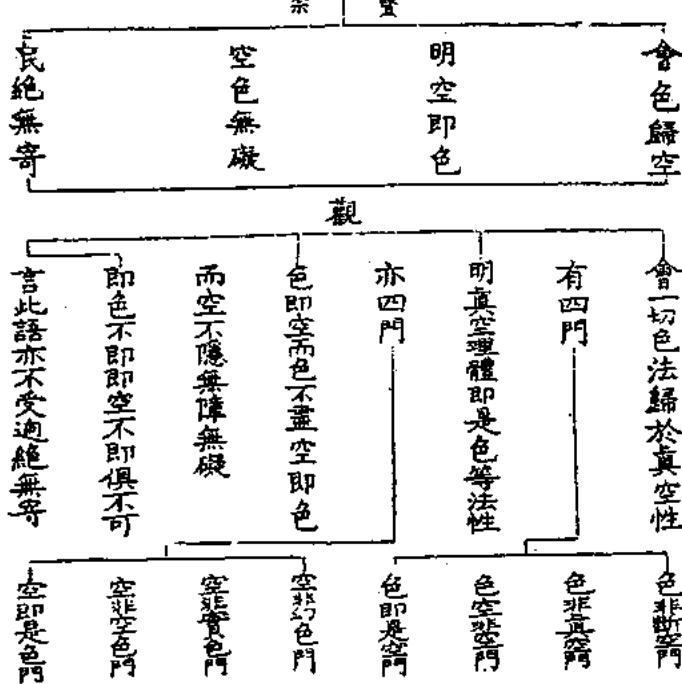 會色歸空
明空即色
空色無礙
民絕無寄
觀
會一切色法歸於眞空性
有四門
明眞空理體即是色等法性
亦四門
色即空而色不盡空即色
而空不隱無障無礙
即色不即即空不即俱不可
言此語亦不受迥絕無寄
色非斷空門
色非眞空門
色空非空門
色即是空門
空非幻色門
空非實色門
空非空色門
空即是色門